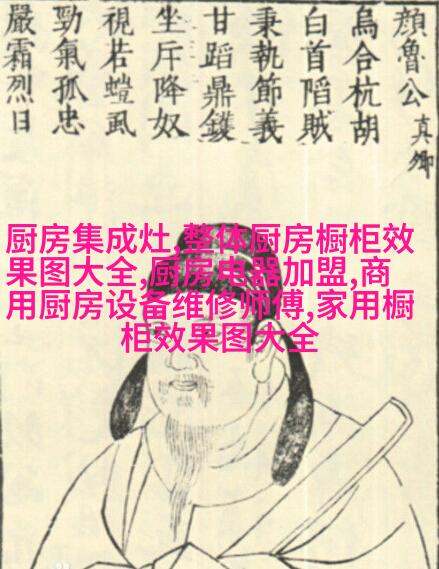 顔魯公真卿
烏合杭胡
白首陷賊
秉執節義
甘蹈鼎鑊
坐斥降奴
視若螘虱
勁氣孤忠
嚴霜烈日
厨房集成灶,整体厨房橱柜效
果图大全,厨房电器加盟,商
用厨房设备维修师傅,家用橱
柜效果图大全